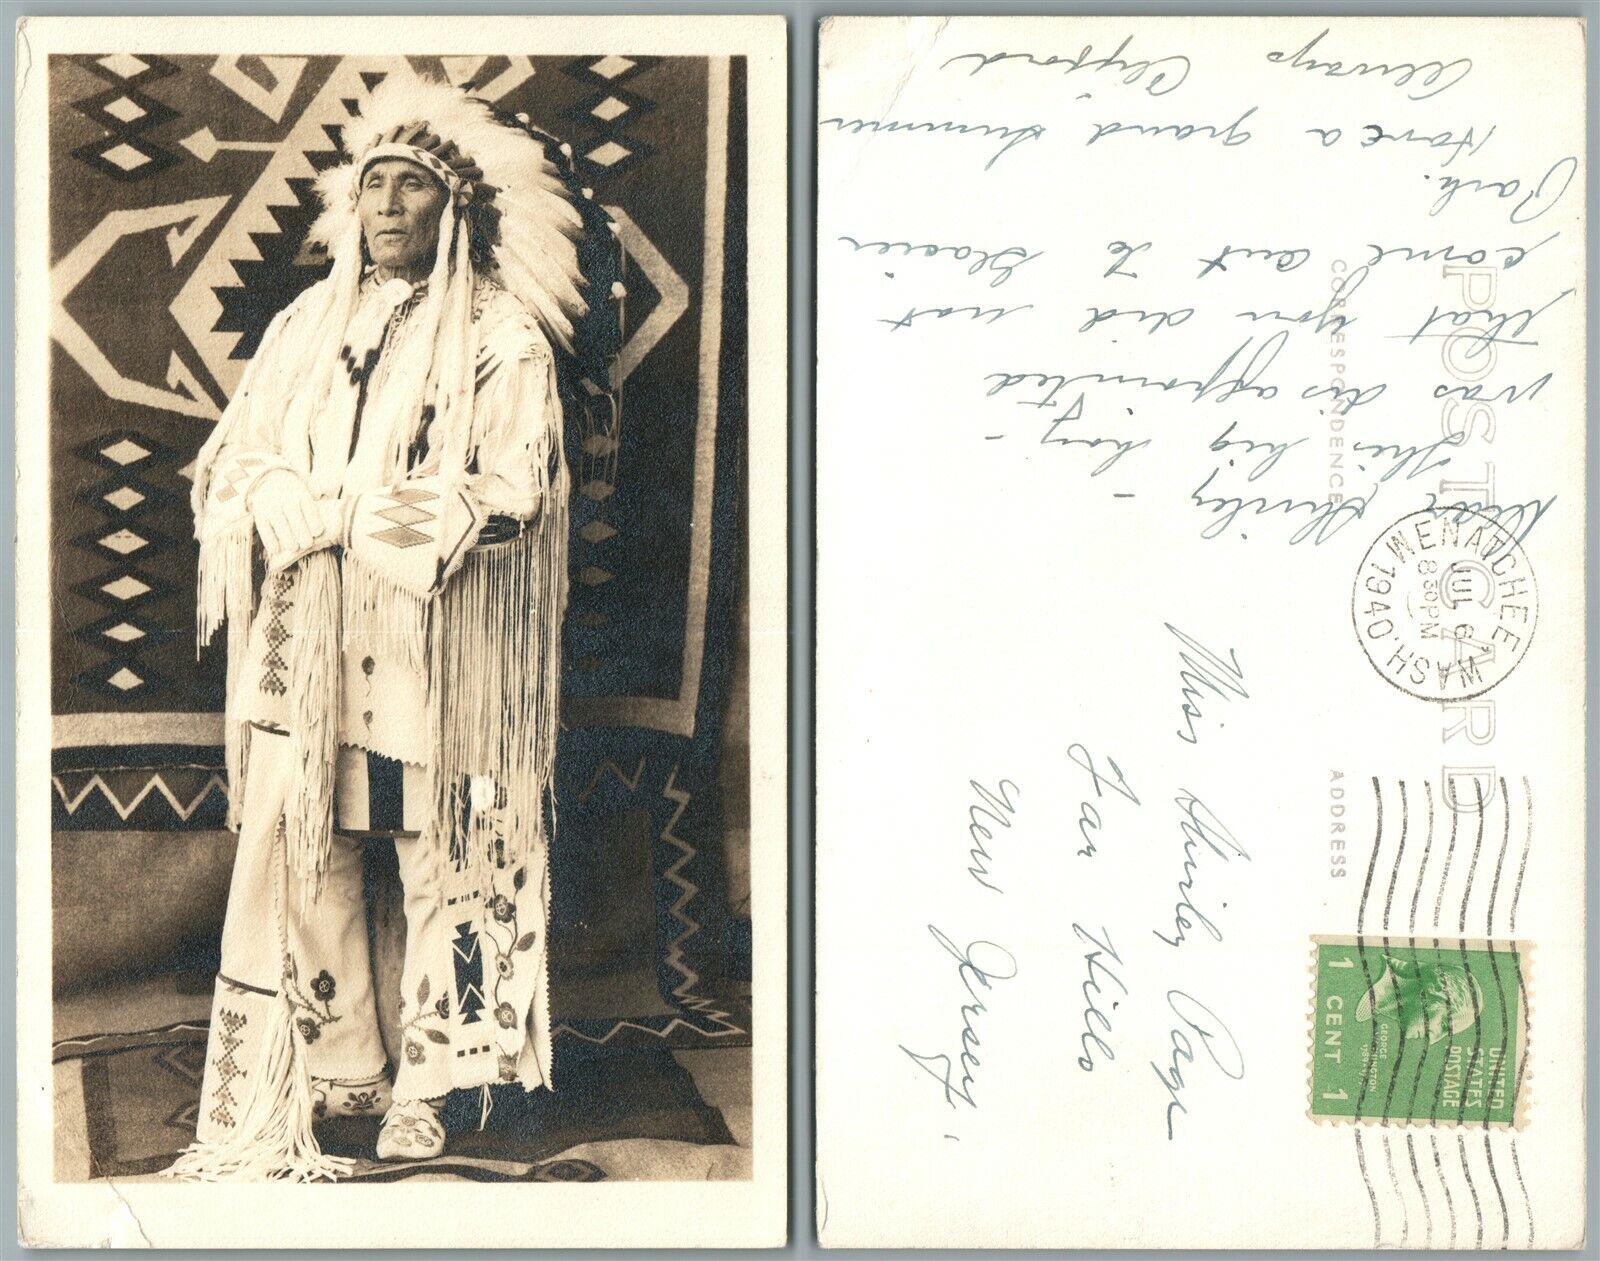 POST CARD
CORRESPONDENCE
ADDRESS
Dear Shirley -
This big boy -
was disappointed
that you did not
come out to Glacier
Park.
Have a grand summer
Always Clifford
WENATCHEE WASH.
JUL 6
8 30 PM
1940
UNITED
STATES
POSTAGE
GEORGE
WASHINGTON
1789-1797
1 CENT 1
Miss Shirley Page
Far Hills
New Jersey.